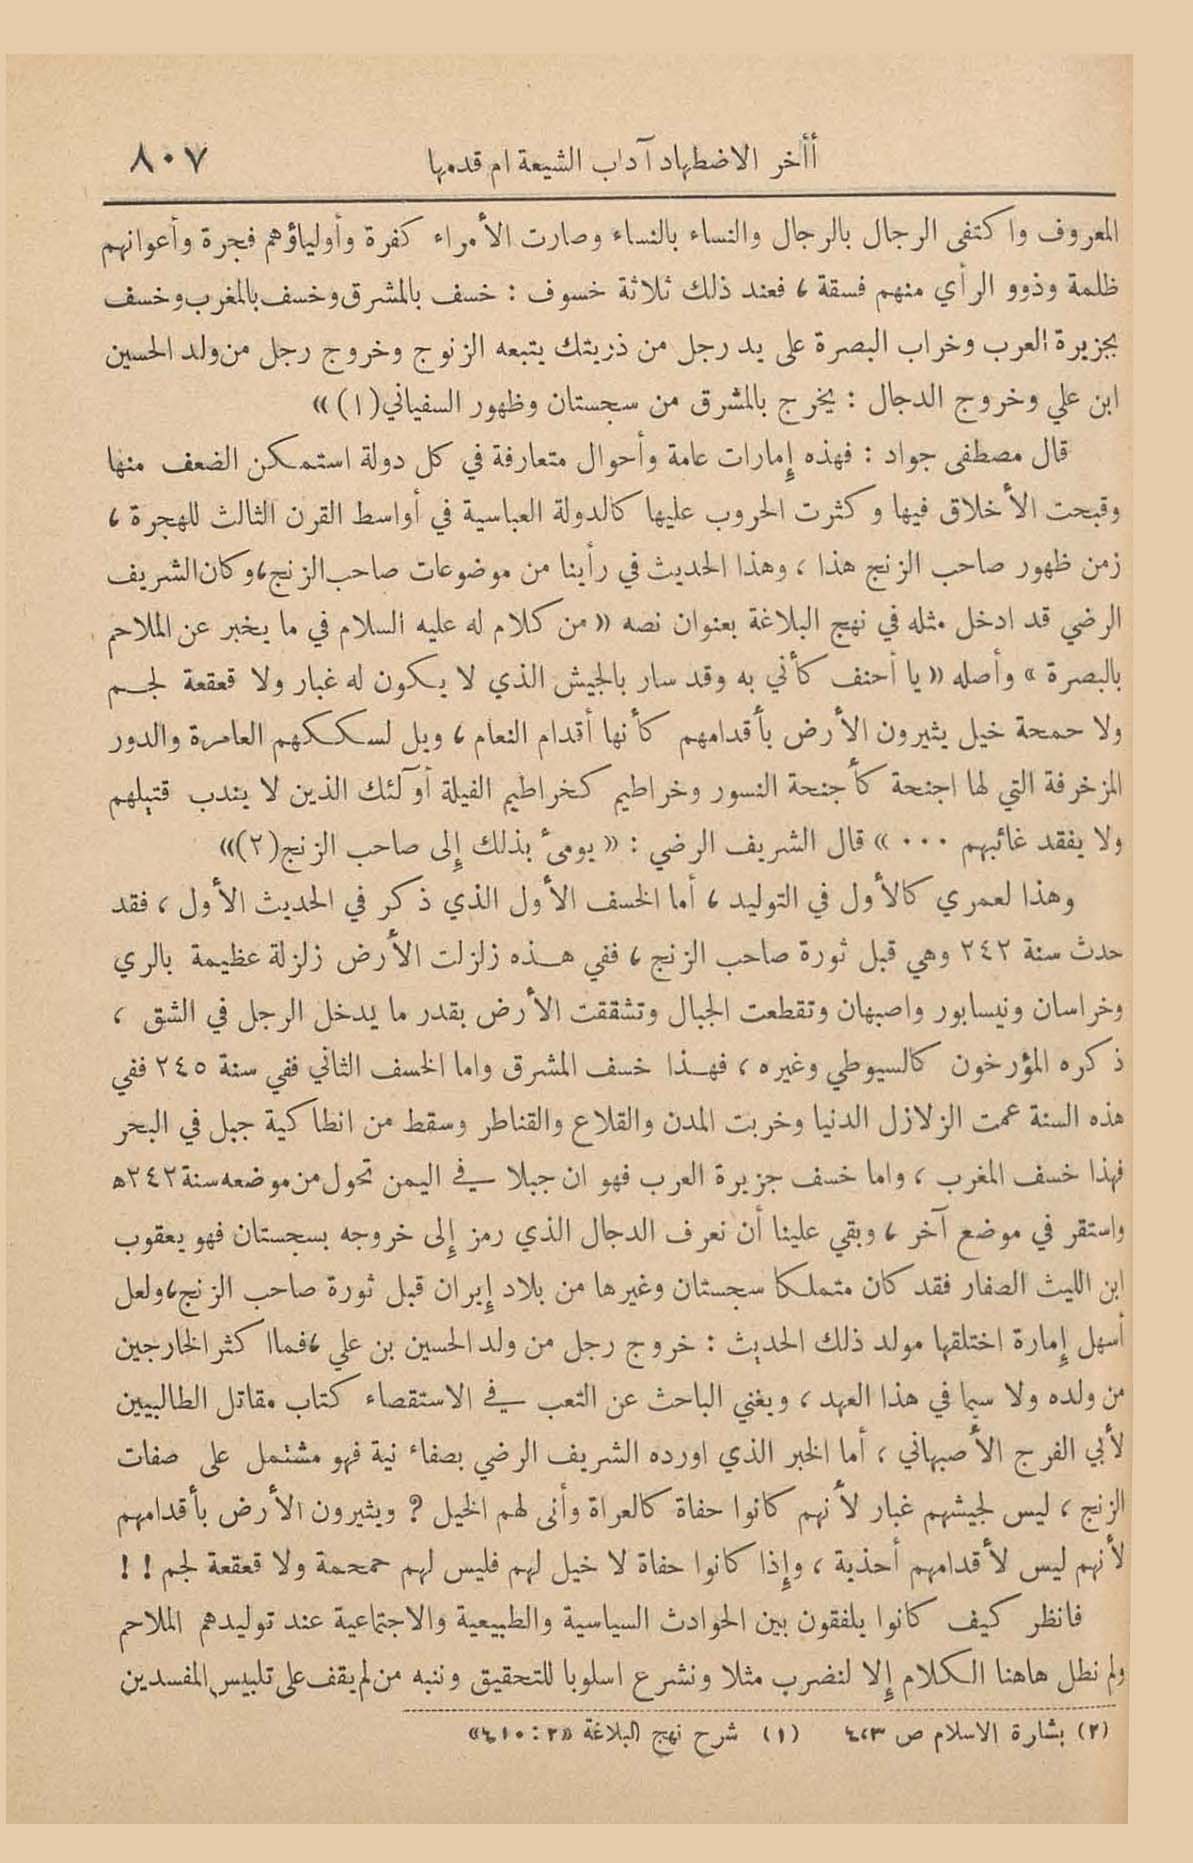 أأخر الاضطهاد آداب الشيعة ام قدمها ٨٠٧
المعروف واكتفى الرجال بالرجال والنساء بالنساء وصارت الأمراء كفرة وأولياؤهم فجرة وأعوانهم
ظلمة وذوو الرأي منهم فسقة ، فعند ذلك ثلاثة خسوف : خسف بالمشرق وخسف بالمغرب وخسف
بجزيرة العرب وخراب البصرة على يد رجل من ذريتك يتبعه الزنوج وخروج رجل من ولد الحسين
ابن علي وخروج الدجال : يخرج بالمشرق من سجستان وظهور السفياني (١) »
قال مصطفى جواد : فهذه إمارات عامة وأحوال متعارفة في كل دولة استمكن الضعف منها
وقبحت الأخلاق فيها وكثرت الحروب عليها كالدولة العباسية في أواسط القرن الثالث للهجرة ،
زمن ظهور صاحب الزنج هذا ، وهذا الحديث في رأينا من موضوعات صاحب الزنج ، وكان الشريف
الرضي قد ادخل مثله في نهج البلاغة بعنوان نصه « من كلام له عليه السلام في ما يخبر عن الملاحم
بالبصرة » وأصله « يا أحنف كأني به وقد سار بالجيش الذي لا يكون له غبار ولا قعقعة لجم
ولا حمحة خيل يثيرون الأرض بأقدامهم كأنها أقدام النعام ، ويل لسككهم العامرة والدور
المزخرفة التي لها اجنحة كأجنحة النسور وخراطيم كخراطيم الفيلة أولئك الذين لا يندب قتيلهم
ولا يفقد غائبهم ... » قال الشريف الرضي : « يومئ بذلك إلى صاحب الزنج (٢) »
وهذا لعمري كالأول في التوليد ، أما الخسف الأول الذي ذكر في الحديث الأول ، فقد
حدث سنة ٢٤٢ وهي قبل ثورة صاحب الزنج ، ففي هذه زلزلت الأرض زلزلة عظيمة بالري
وخراسان ونيسابور واصبهان وتقطعت الجبال وتشققت الأرض بقدر ما يدخل الرجل في الشق ،
ذكره المؤرخون كالسيوطي وغيره ، فهذا خسف المشرق واما الخسف الثاني ففي سنة ٢٤٥ ففي
هذه السنة عمت الزلازل الدنيا وخربت المدن والقلاع والقناطر وسقط من انطاكية جبل في البحر
فهذا خسف المغرب ، واما خسف جزيرة العرب فهو ان جبلا في اليمن تحول من موضعه سنة ٢٤٢ه
واستقر في موضع آخر ، وبقي علينا أن نعرف الدجال الذي رمز إلى خروجه بسجستان فهو يعقوب
ابن الليث الصفار فقد كان متملكا سجستان وغيرها من بلاد إيران قبل ثورة صاحب الزنج ، ولعل
أسهل إمارة اختلقها مولد ذلك الحديث : خروج رجل من ولد الحسين بن علي ، فما اكثر الخارجين
من ولده ولا سيما في هذا العهد ، ويغني الباحث عن التعب في الاستقصاء كتاب مقاتل الطالبيين
لأبي الفرج الأصبهاني ، أما الخبر الذي اورده الشريف الرضي بصفاء نية فهو مشتمل على صفات
الزنج ، ليس لجيشهم غبار لأنهم كانوا حفاة كالعراة وأنى لهم الخيل ? ويثيرون الأرض بأقدامهم
لأنهم ليس لأقدامهم أحذية ، وإذا كانوا حفاة لا خيل لهم فليس لهم حمحمة ولا قعقعة لجم !!
فانظر كيف كانوا يلفقون بين الحوادث السياسية والطبيعية والاجتماعية عند توليدهم الملاحم
ولم نطل هاهنا الكلام إلا لنضرب مثلا ونشرع اسلوبا للتحقيق وننبه من لم يقف على تلبيس المفسدين
(٢) بشارة الاسلام ص ٤٢٣ (١) شرح نهج البلاغة «٢ : ٤١٠»